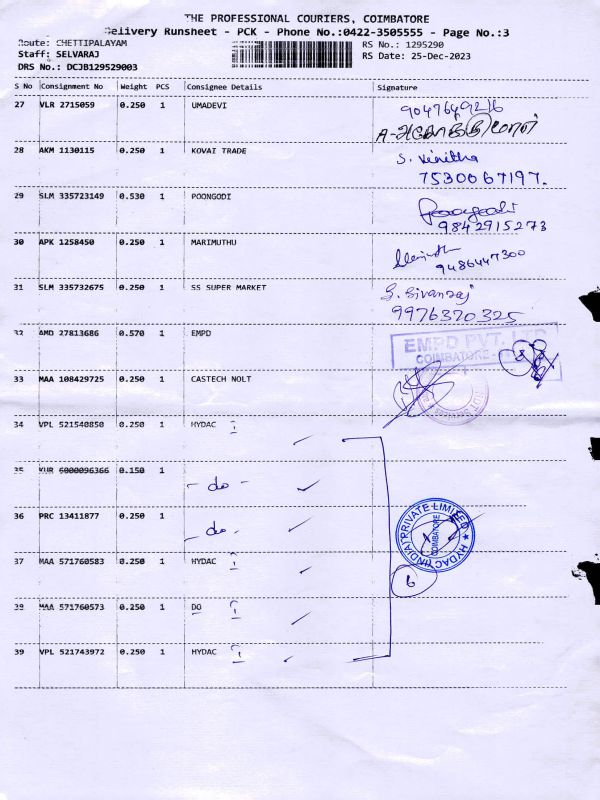 THE PROFESSIONAL COURIERS, COIMBATORE
Delivery Runsheet - PCK - Phone No.:0422-3505555 - Page No.:3
Route: CHETTIPALAYAM
Staff: SELVARAJ
DRS No.: DCJB129529003
RS No.: 1295290
RS Date: 25-Dec-2023
S No Consignment No Weight PCS Consignee Details Signature
27 VLR 2715059 0.250 1 UMADEVI 9047649216
28 AKM 1130115 0.250 1 KOVAI TRADE S. Vinitha
7530067197.
29 SLM 335723149 0.530 1 POONGODI Poongodi
9842915273
30 APK 1258450 0.250 1 MARIMUTHU
9486447300
31 SLM 335732675 0.250 1 SS SUPER MARKET S. Sivanraj
9976370325
32 AMD 27813686 0.570 1 EMPD EMPD PVT. LTD
COIMBATORE
33 MAA 108429725 0.250 1 CASTECH NOLT
34 VPL 521540850 0.250 1 HYDAC
35 KUR 6000096366 0.150 1 - do -
36 PRC 13411877 0.250 1 - do -
HYDAC (INDIA) PRIVATE LIMITED
COIMBATORE
37 MAA 571760583 0.250 1 HYDAC
6
38 MAA 571760573 0.250 1 DO
39 VPL 521743972 0.250 1 HYDAC